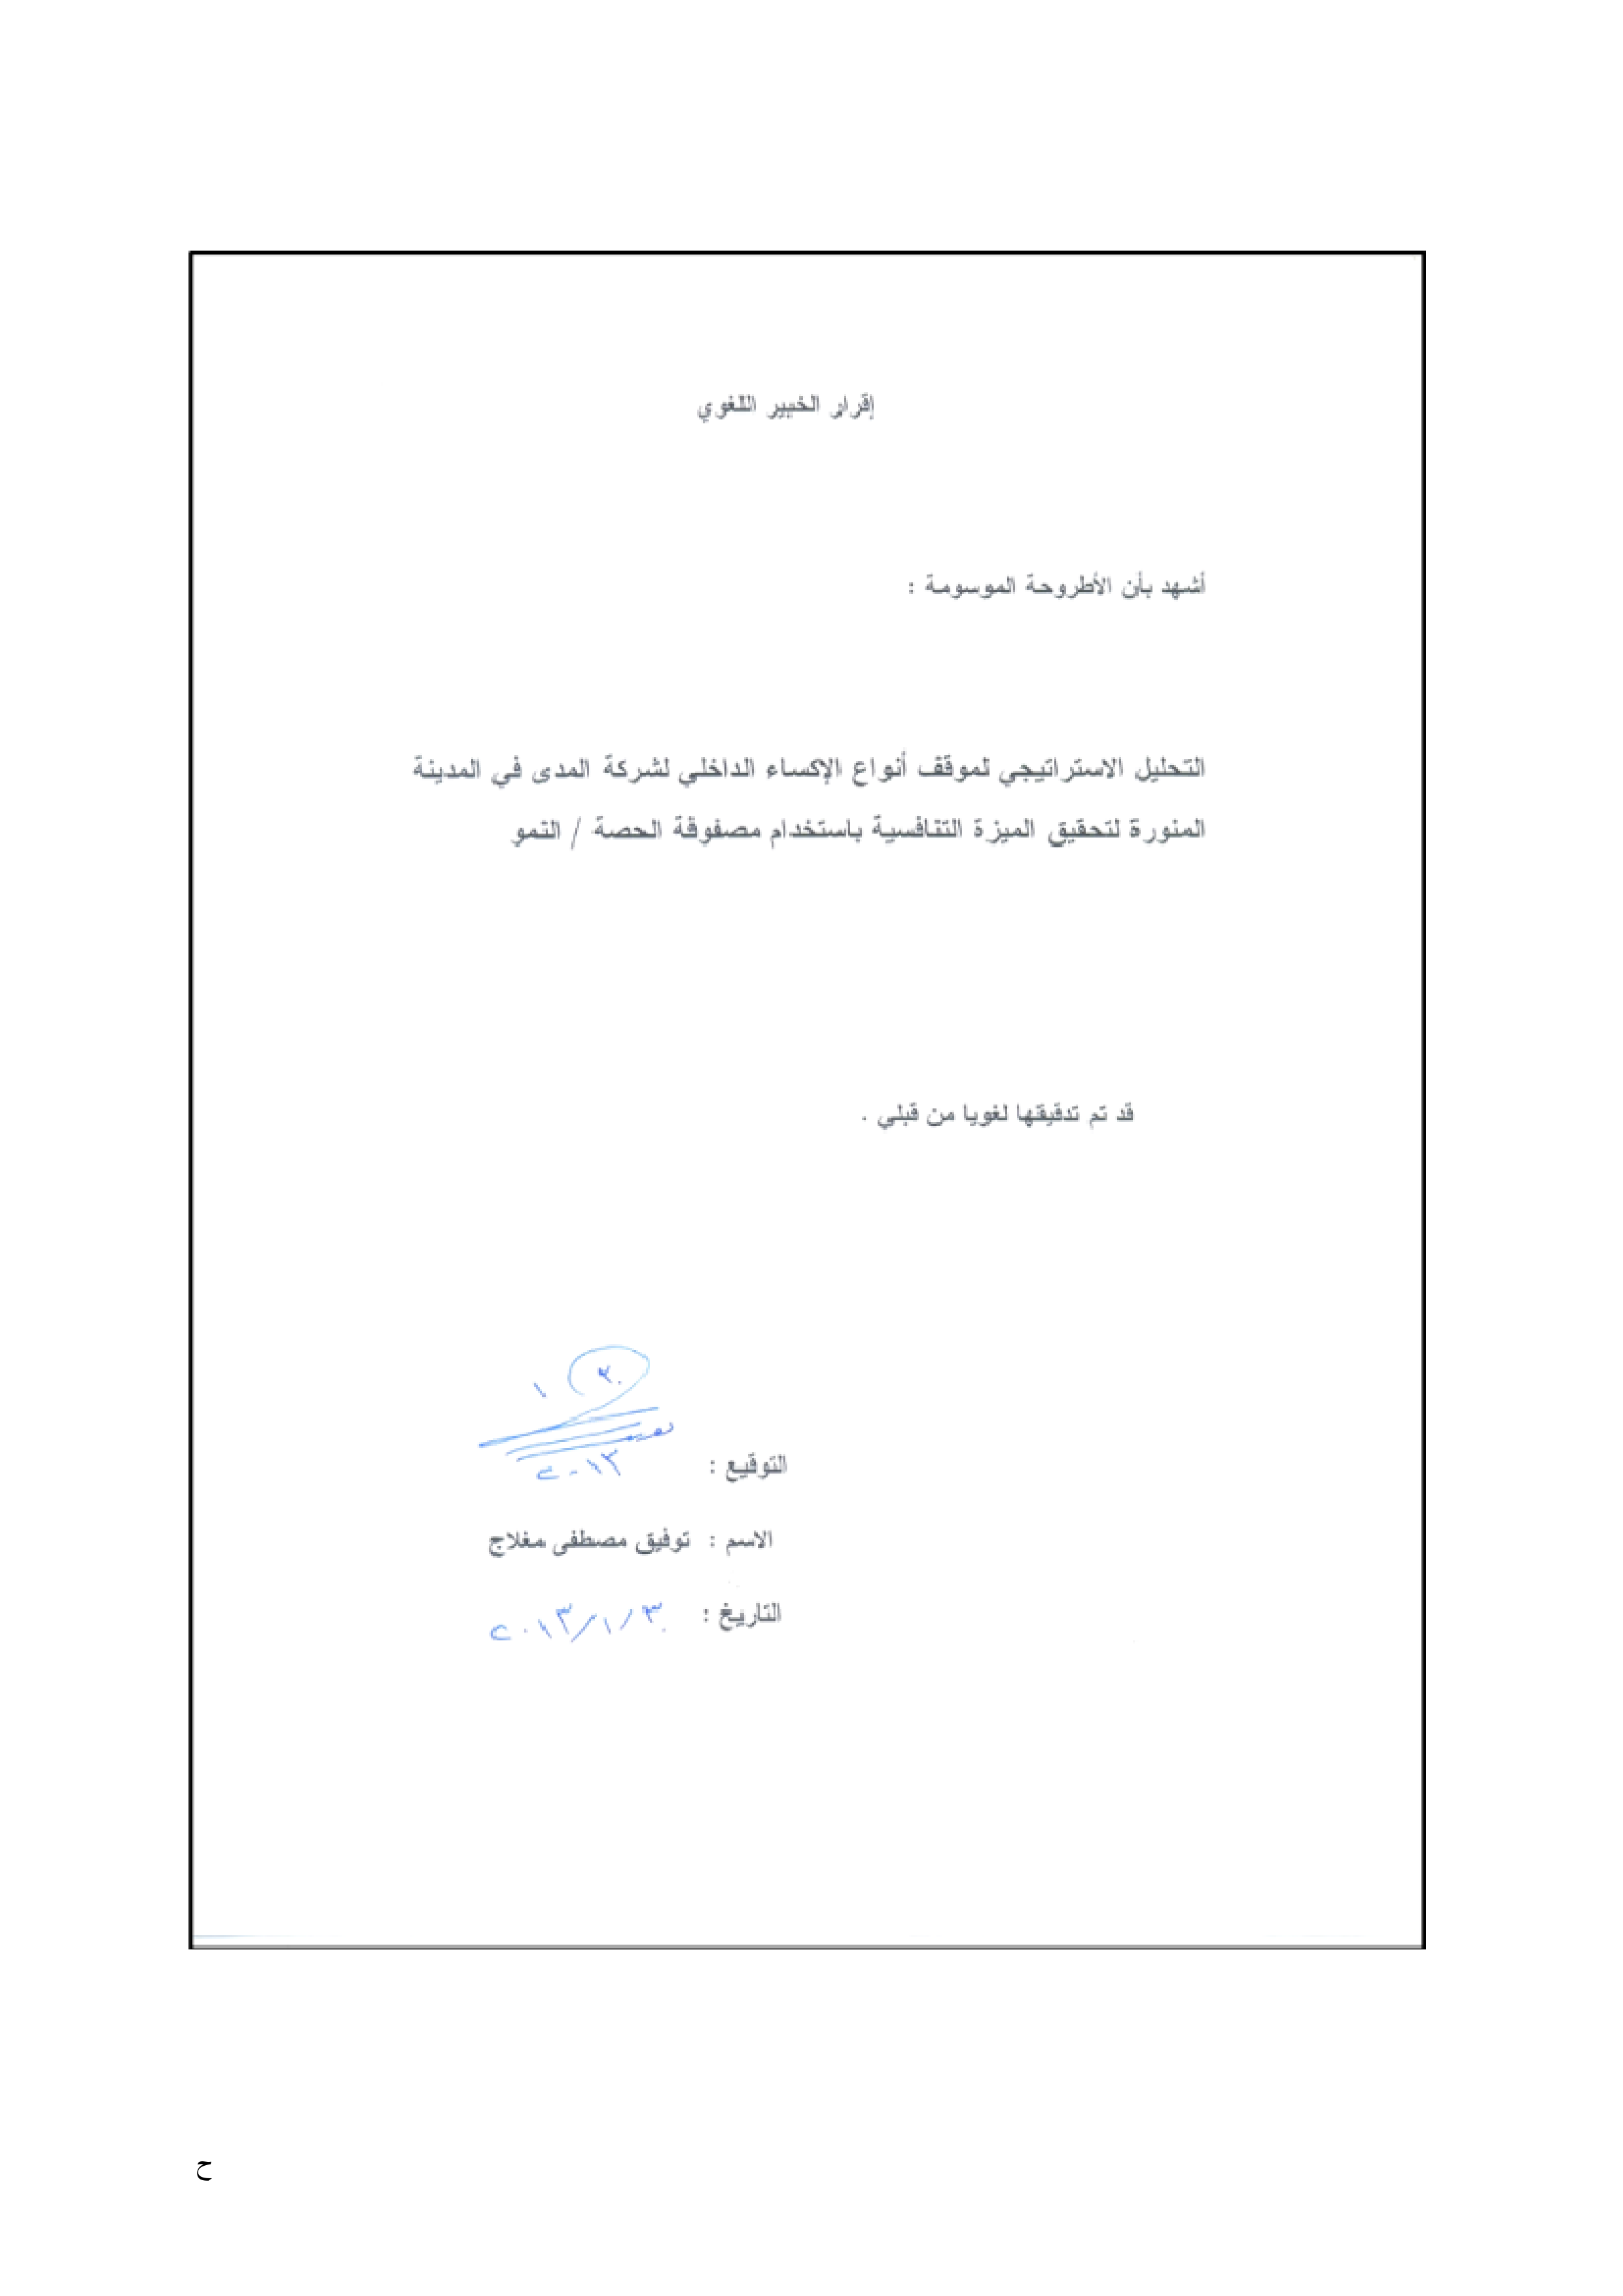 إقرار الخبير اللغوي
أشهد بأن الأطروحة الموسومة :
التحليل الاستراتيجي لموقف أنواع الإكساء الداخلي لشركة المدى في المدينة
المنورة لتحقيق الميزة التنافسية باستخدام مصفوفة الحصة / النمو
قد تم تدقيقها لغويا من قبلي .
٣٠ ١
٢٠١٣
التوقيع :
الاسم : توفيق مصطفى مغلاج
التاريخ : ٣٠/١/٢٠١٣
ح